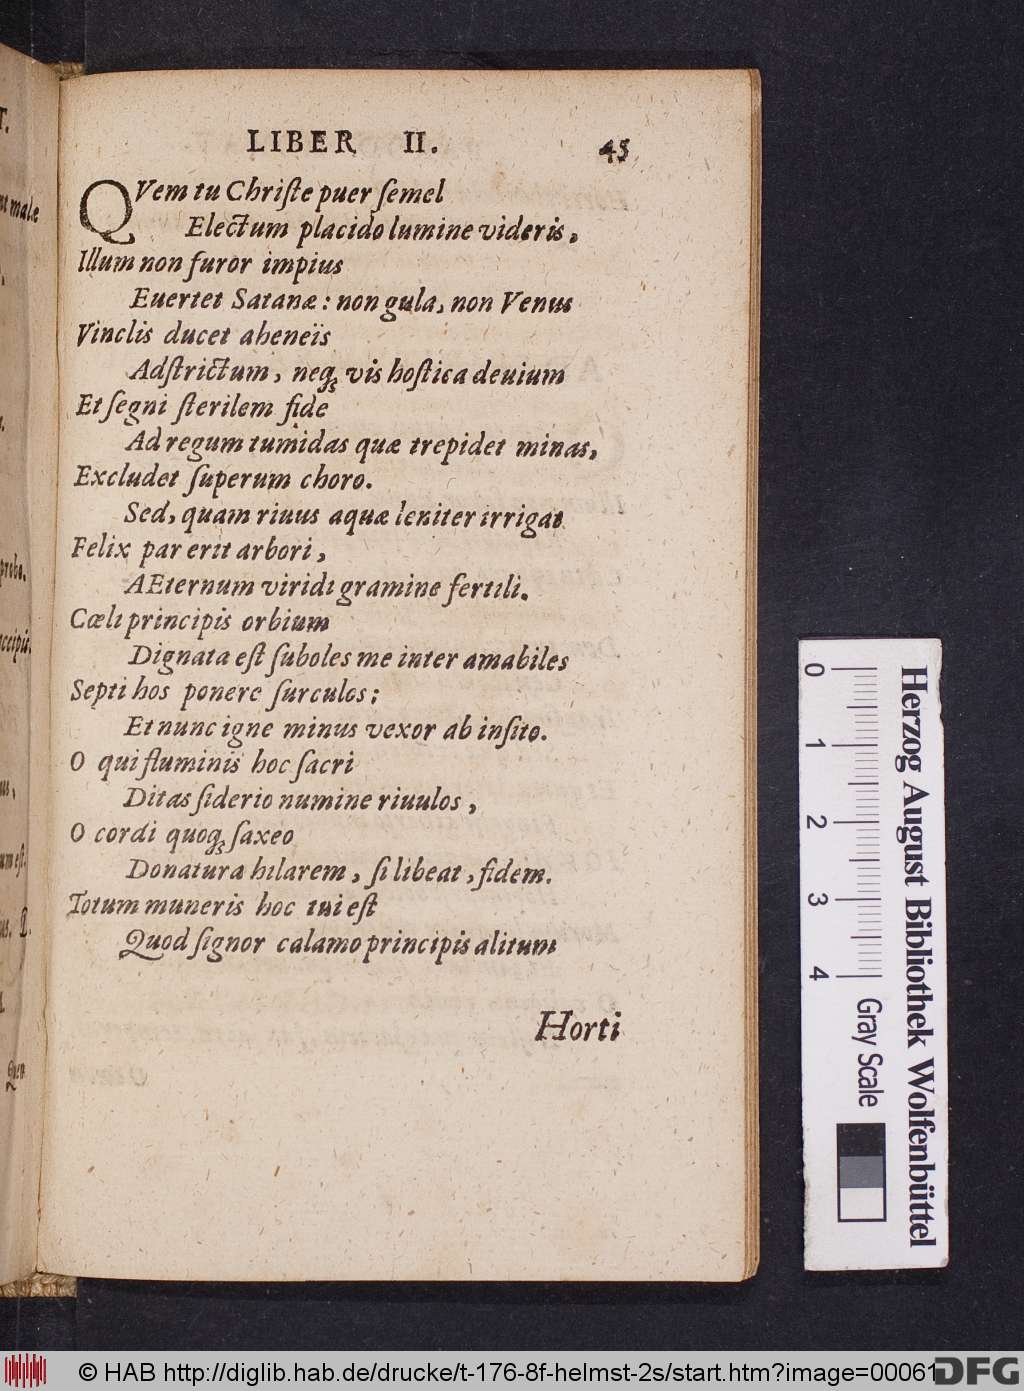 LIBER II. 45
QVem tu Christe puer semel
Electum placido lumine videris,
Illum non furor impius
Euertet Satanæ: non gula, non Venus
Vinclis ducet aheneis
Adstrictum, neq; vis hostica deuium
Et segni sterilem fide
Ad regum tumidas quæ trepidet minas,
Excludet superum choro.
Sed, quam riuus aquæ leniter irrigat
Felix par erit arbori,
AEternum viridi gramine fertili.
Cœli principis orbium
Dignata est suboles me inter amabiles
Septi hos ponere surculos;
Et nunc igne minus vexor ab insito.
O qui fluminis hoc sacri
Ditas siderio numine riuulos,
O cordi quoq; saxeo
Donatura hilarem, si libeat, fidem.
Totum muneris hoc tui est
Quod signor calamo principis alitum
Horti
T.
malæ
probo.
accipis.
um est.
Quen
0 1 2 3 4
Herzog August Bibliothek Wolfenbüttel
Gray Scale
© HAB http://diglib.hab.de/drucke/t-176-8f-helmst-2s/start.htm?image=00061
DFG